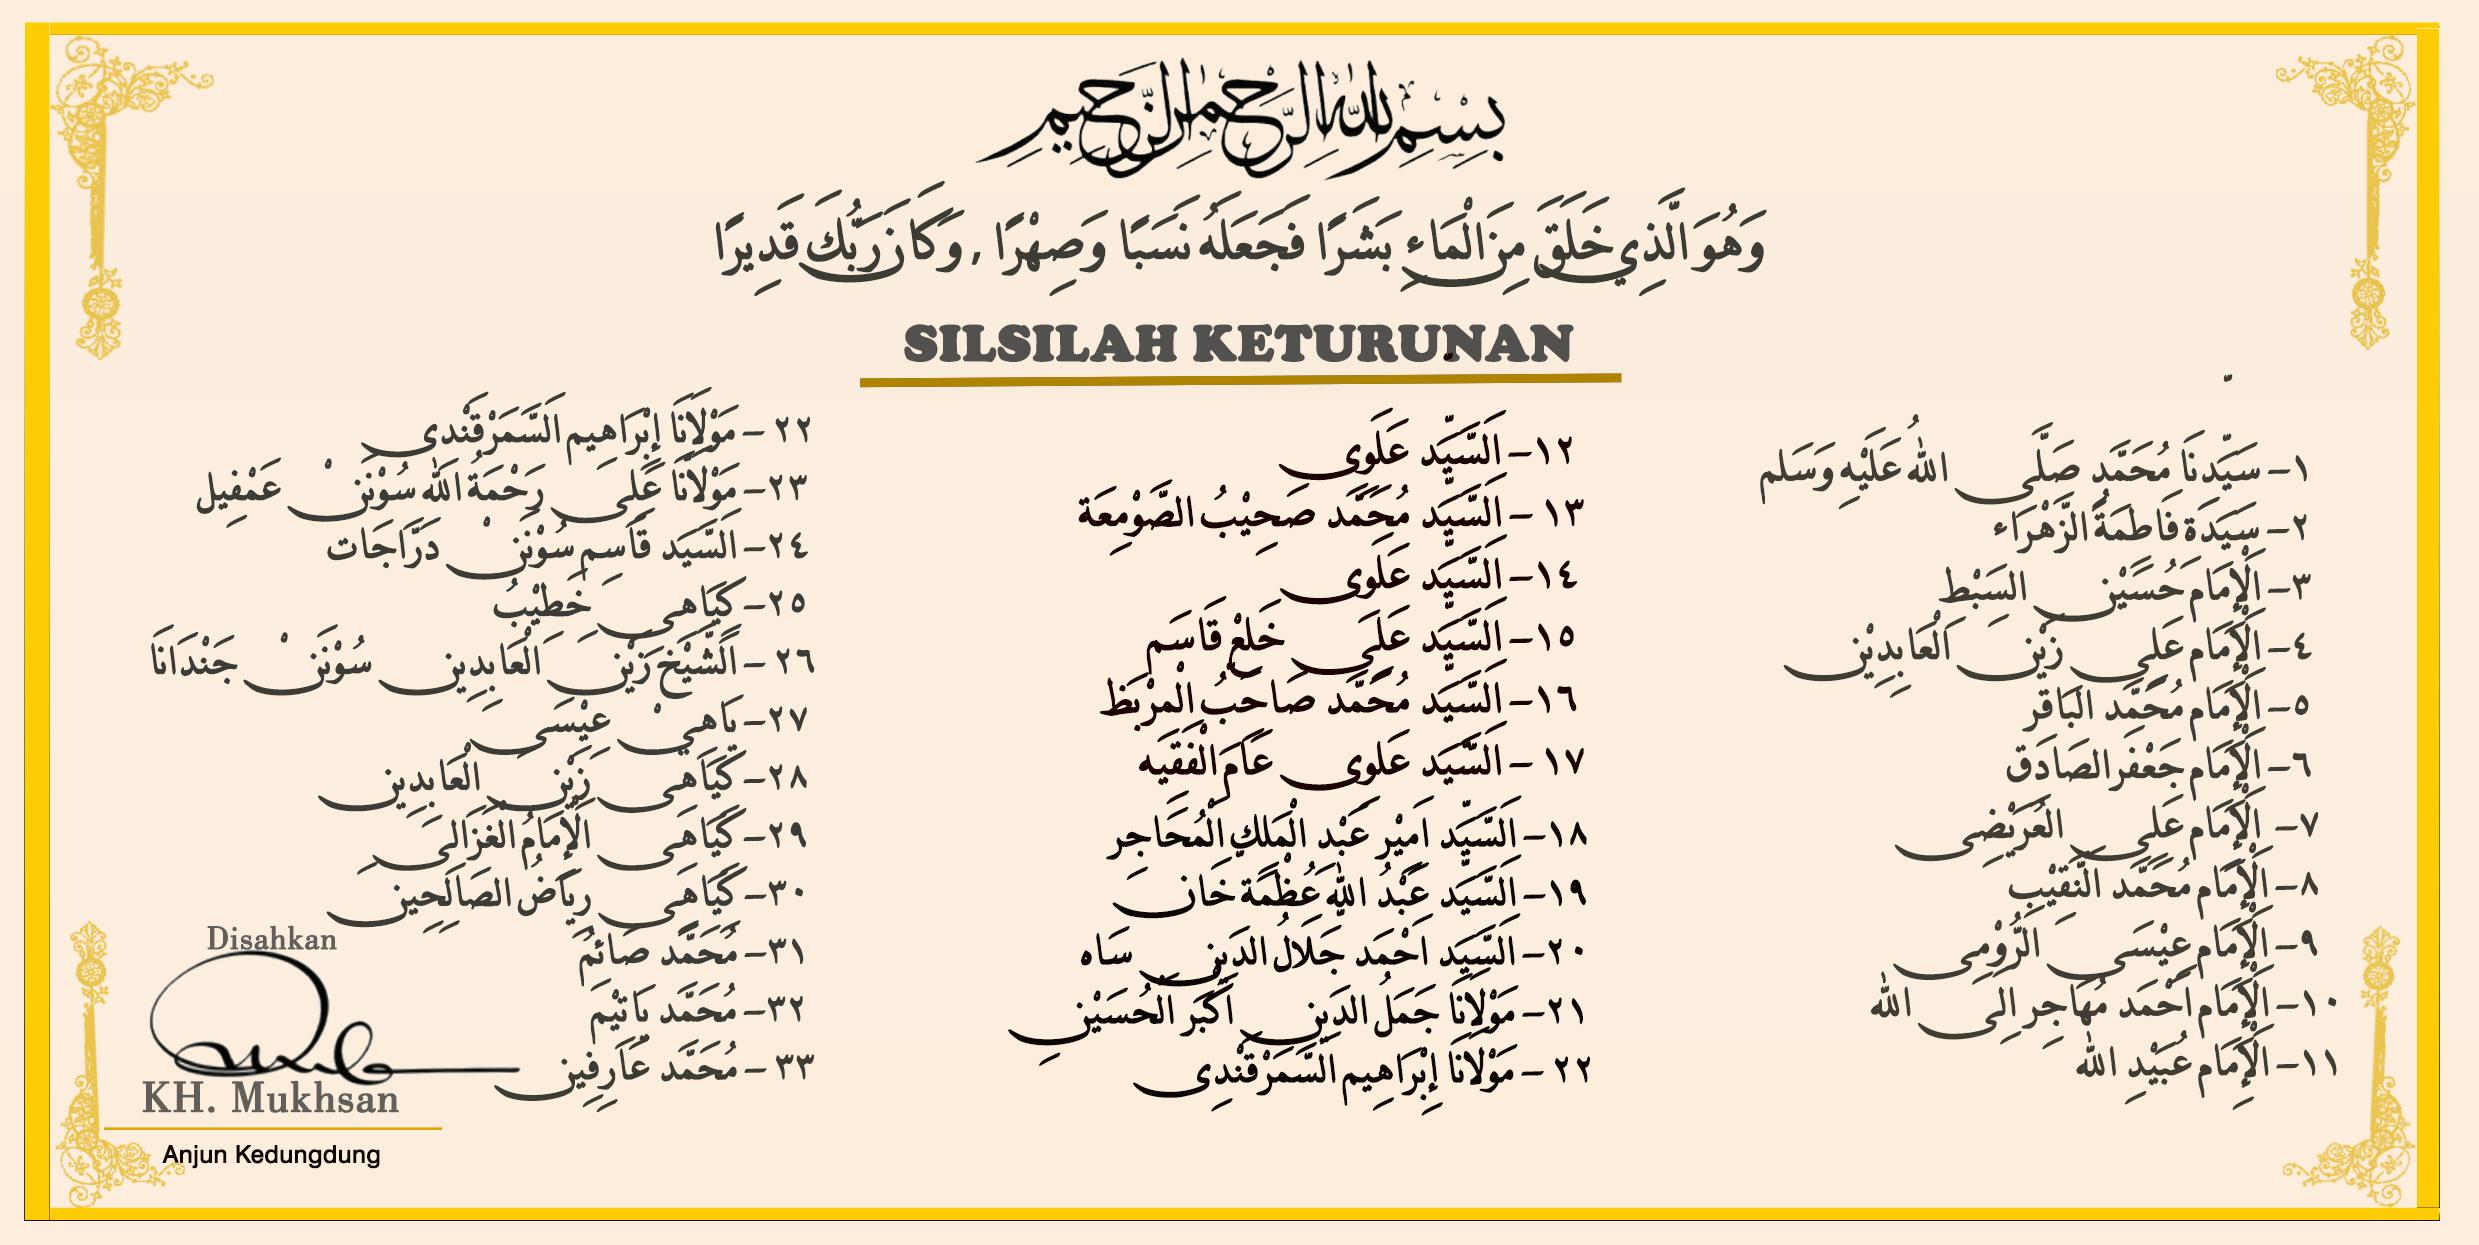 بِسْمِ اللهِ الرَّحْمٰنِ الرَّحِيمِ
وَهُوَ الَّذِي خَلَقَ مِنَ الْمَاءِ بَشَرًا فَجَعَلَهُ نَسَبًا وَصِهْرًا , وَكَانَ رَبُّكَ قَدِيرًا
SILSILAH KETURUNAN
١- سَيّدنَا مُحَمَّدِ صَلَّى اللهُ عَلَيْهِ وَسَلم
٢- سَيَدَة فَاطمَةُ الزَّهْرَاء
٣- اَلْإِمَام حُسَيْنِ السَِبْطِ
٤- اَلْإِمَام عَلَِى زَيْنِ الَْعَابِدِيْنِ
٥- اَلْإِمَام مُحَمَّد الَبَاقر
٦- اَلْإِمَام جَعْفَر الصَادَق
٧- اَلْإِمَام عَلَِى العُرَيْضِى
٨- اَلْإِمَام مُحَمَّد النَّقِيْبِ
٩- اَلْإِمَام عِيْسَى الَرُّوْمِى
١٠- اَلْإِمَام اَحْمَد مُهَاجِر اِلَى الله
١١- اَلْإِمَام عُبَيْدِ الله
١٢- اَلسَّيِّد عَلَوِى
١٣- اَلسَّيِّد مُحَمَّد صَحِيْبُ الصَّوْمِعَة
١٤- اَلسَّيِّد عَلَوى
١٥- اَلسَّيِّد عَلَِى خَلِعْ قَاسَم
١٦- اَلسَّيِّد مُحَمَّد صَاحَبُ الْمرْبَظ
١٧- اَلسَّيِّد عَلَوى عَامَ الْفَقِيَه
١٨- اَلسَّيِّد اَمِيْر عَبْد الْمَلِكِ الْمُحَاجِر
١٩- اَلسَّيِّد عَبْدُ الله عَُظْمَة خَانَ
٢٠- اَلسَّيِّد اَحْمَد جَلَالُ الدَيِنِ سَاه
٢١- مَوْلَانَا جَمَلُ الدَيِنِ اَكْبَر الْحُسَيْنِ
٢٢- مَوْلَانَا إِبْرَاهِيم السَّمَرْقَنْدِى
٢٢- مَوْلَانَا إِبْرَاهِيم اَلسَّمَرْقَنْدى
٢٣- مَوْلَانَا عَلَِى رَحْمَةُ الله سُوْنَنْ عَمْفِيل
٢٤- السَّيَد قَاسِم سُوْنَنْ دَرَّاجَات
٢٥- كَيَاهِى خَطيْبُ
٢٦- اَلشَّيْخ زَيْنَ الْعَابِدِين سُوْنَنْ جَنْدَانَا
٢٧- يَاهِيْ عِيْسَى
٢٨- كَيَاهَى زَيْنَ الْعَابِدِين
٢٩- كَيَاهَى اَلْإِمَامُ الغَزَالِى
٣٠- كَيَاهَى رِيَاضُ الصَالَحِين
٣١- مُحَمَّد صَائمُ
٣٢- مُحَمَّد يَاتيْمَ
٣٣- مُحَمَّد عَارِفِين
Disahkan
KH. Mukhsan
Anjun Kedungdung